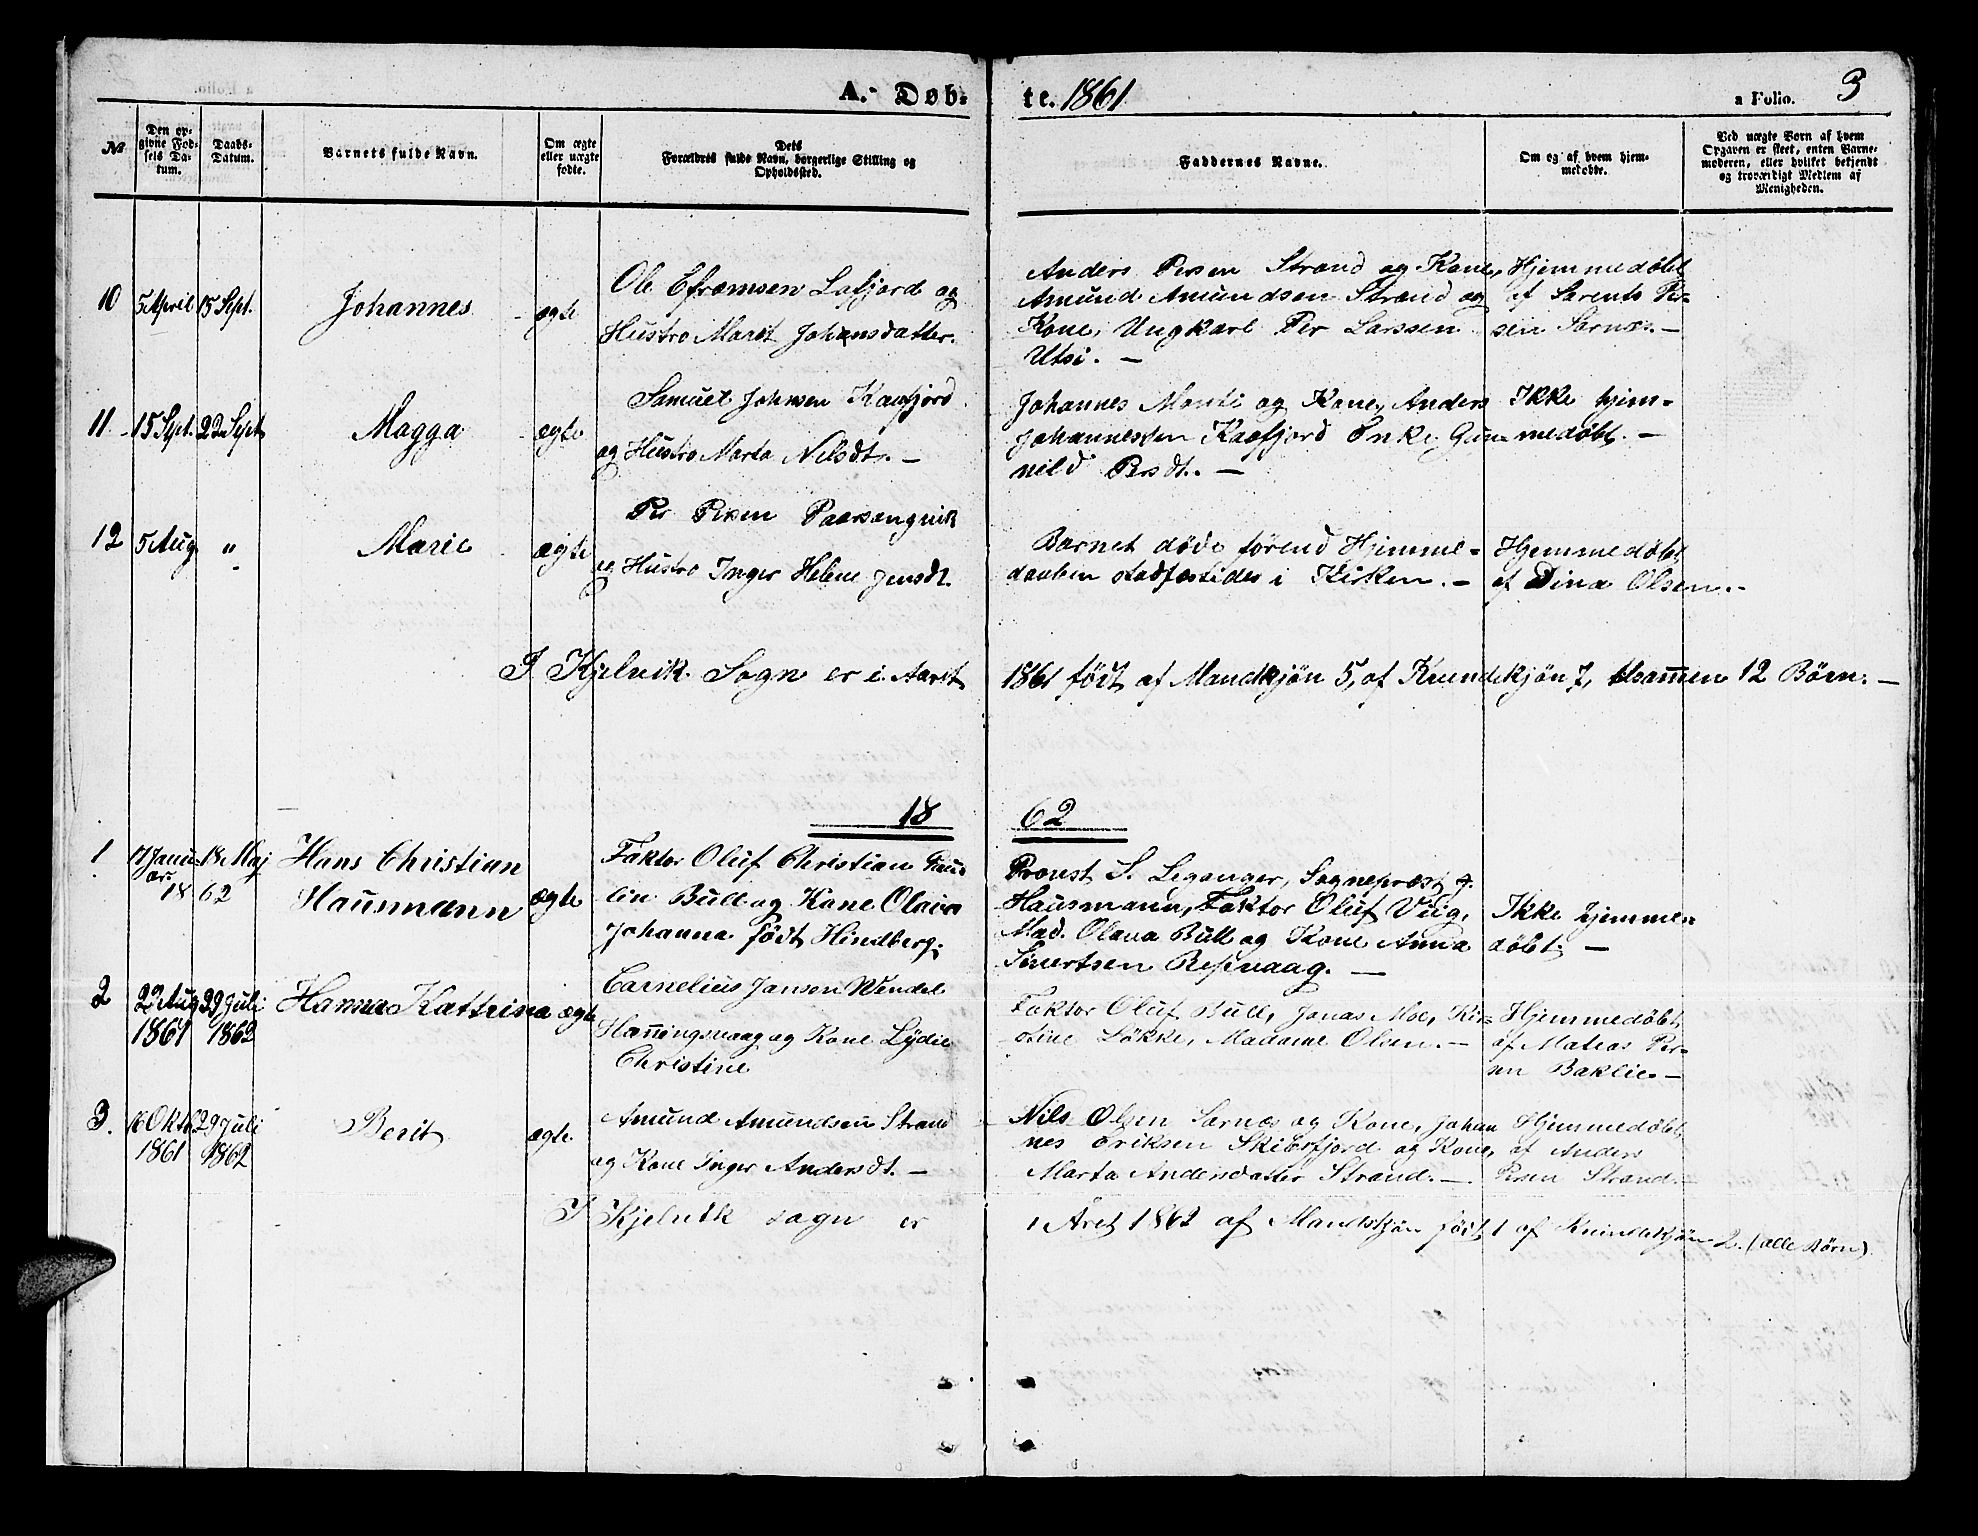 A. Døb-
te. 1861
a Folio. 3
№
Den op-
givne Fød-
sels Da-
tum.
Daabs-
Datum.
Barnets fulde Navn.
Om ægte
eller uægte
fødte.
Dets
Forældres fulde Navn, borgerlige Stilling og
Opholdssted.
Faddernes Navne.
Om og af hvem hjem-
medøbt.
Ved uægte Børn af hvem
Opgaven er skeet, enten Barne-
moderen, eller hvilket bekjendt
og troværdigt Medlem af
Menigheden.
10 5 April 15 Sept. Johannes ægte
Ole Efraimsen Lafjord og
Hustro Marit Johansdatter.
Anders Persen Strand og Kone,
Amund Amundsen Strand og
Kone, Ungkarl Per Larssen
Utsi. —
Hjemmedøbt
af Sarents Per-
sen Sarnæs. —
11 15 Sept. 22 Sept. Magga ægte
Samuel Johnsen Kaafjord
og Hustro Marta Nilsdt. —
Johannes Monti og Kone, Anders
Johannessen Kaafjord Enke Gun-
nild Persdt. —
Ikke hjem-
medøbt. —
12 5 Aug " Marie ægte
Per Persen Paorsangvik
og Hustro Inger Helene Jensdt.
Barnet døde førend Hjemme-
daaben stadfæstedes i Kirken. —
Hjemmedøbt
af Dina Olsen. —
I Kjelvik Sogn er i Aaret 1861 født af Mandkjøn 5, af Kvindekjøn 7, tilsammen 12 Børn. —
1862
1 17 Janu-
ar 18 Maj
1862
Hans Christian
Hausmann ægte
Faktor Oluf Christian Pau-
lin Bull og Kone Olava
Johanna født Hindberg.
Provst S. Leganger, Sognepræst J.
Hausmann, Faktor Oluf Viig,
Mad. Olava Bull og Kone Anna
Sivertsen Repvaag. —
Ikke hjemme-
døbt. —
2 22 Aug 1861 29 Juli 1862 Hanna Kattrina ægte
Cornelius Jansen Wendel
Honningsvaag og Kone Lydie
Christine
Faktor Oluf Bull, Jonas Moe, Kir-
stine Løkke, Madame Olsen. —
Hjemmedøbt
af Mateas Per-
sen Baklie. —
3. 16 Oktb 1861 29 Juli 1862 Berit ægte
Amund Amundsen Strand
og Kone Inger Andersdt. —
Nils Olsen Sarnæs og Kone, Johan
nes Eriksen Skibsfjord og Kone,
Marta Andersdatter Strand. —
Hjemmedøbt
af Anders
Persen Strand. —
I Kjelvik sogn er i Året 1862 af Mandskjøn født 1 af Kvindekjøn 2. (alle Børn).